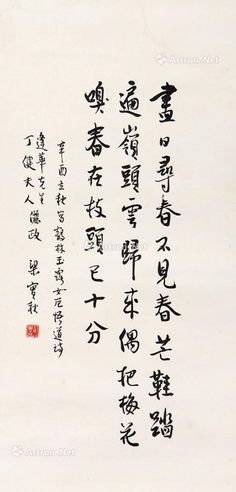 盡日尋春不見春芒鞋踏
遍嶺頭雲歸來偶把梅花
嗅春在枝頭已十分
辛酉立秋寫鶴林玉露女尼悟道詩
達華先生
丁健夫人儷政 梁實秋
Artron.Net